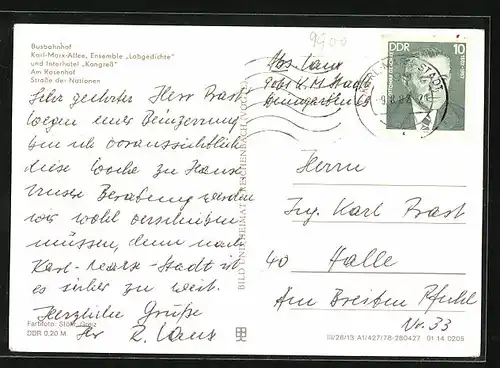 Busbahnhof
Karl-Marx-Allee, Ensemble „Lobgedichte"
und Interhotel „Kongreß"
Am Rosenhof
Straße der Nationen
Sehr geehrter Herr Prast
wegen einer
bin ich voraussichtlich
diese Woche zu Hause
unsere Beratung werden
wir wohl verschieben
müssen, denn nach
Karl-Marx-Stadt ist
es sicher zu weit.
Herzliche Grüße
Ihr
Farbfoto: Greiz
DDR 0,20 M
BILD UND HEIMAT REICHENBACH (VOGTL)
9900
Abs.
K.M. Stadt
DDR 10
Herrn
Ing. Karl Prast
40 Halle
Am Breiten Pfuhl
Nr. 33
III/26/13 A1/427/78 280427 01 14 0205